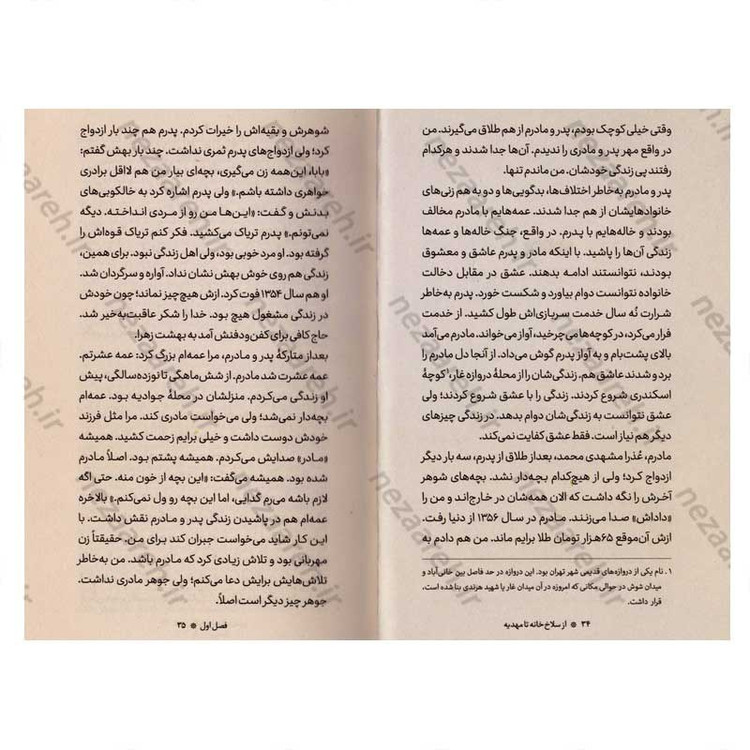 وقتی خیلی کوچک بودم، پدر و مادرم از هم طلاق می‌گیرند. من
در واقع مهر پدر و مادری را ندیدم. آن‌ها جدا شدند و هرکدام
رفتند پی زندگی خودشان. من ماندم تنها.
پدر و مادرم به‌خاطر اختلاف‌ها، بدگویی‌ها و دو به هم زنی‌های
خانواد‌هایشان از هم جدا شدند. عمه‌هایم با مادرم مخالف
بودند و خاله‌هایم با پـدرم. در واقع، جنگ خاله‌ها و عمه‌ها
زندگی آن‌ها را پاشید. با اینکه مادر و پـدرم عاشق و معشوق
بودند، نتوانستند ادامـه بدهند. عشق در مقابل دخالت
خانواده نتوانست دوام بیاورد و شکست خورد. پدرم به‌خاطر
شـرارت نُه سال خدمت سربازی‌اش طول کشید. از خدمت
فرار می‌کرد، در کوچه‌ها می‌چرخید، آواز می‌خواند. مادرم می‌آمد
بالای پشت‌بام و به آواز پدرم گوش می‌داد. از آنجا دل مادرم را
برد و شدند عاشق هم. زندگی‌شان را از محلهٔ دروازه غار،۱ کوچهٔ
اسکندری شروع کردند. زندگی را با عشق شروع کردند؛ ولی
عشق نتوانست به زندگی‌شان دوام بدهد. در زندگی چیزهای
دیگر هم نیاز است. فقط عشق کفایت نمی‌کند.
مادرم، عُذرا مشهدی محمد، بعداز طلاق از پدرم، سه بار دیگر
ازدواج کرد؛ ولی از هیچ‌کدام بچه‌دار نشد. بچه‌های شوهر
آخرش را نگه داشت که الان همه‌شان در خارج‌اند و من را
«داداش» صدا می‌زنند. مـادرم در سال ۱۳۵۶ از دنیا رفت.
ازش آن‌موقع ۶۵هـزار تومان طلا برایم ماند. من هم دادم به
۱. نام یکی از دروازه‌های قدیمی شهر تهران بود. این دروازه در حد فاصل بین خانی‌آباد و
میدان شوش در حوالی مکانی که امروزه در آن میدان غار یا شهید هرندی بنا شده است،
قرار داشت.
۳۴ ※ از سلاخ‌خانه تا مهدیه
شوهرش و بقیه‌اش را خیرات کردم. پدرم هم چند بار ازدواج
کرد؛ ولی ازدواج‌های پدرم ثمری نداشت. چند بار بهش گفتم:
«بابا، این‌همه زن می‌گیری، بچه‌ای بیار من هم لااقل برادری
خواهری داشته باشم.» ولی پدرم اشاره کرد به خالکوبی‌های
بدنـش و گـفـت: «ایـن‌هـا مـن رو از مـردی انـداخـتـه. دیگه
نمی‌تونم.» پـدرم تریاک می‌کشید. فکر کنم تریاک قوه‌اش را
گرفته بود. او مرد خوبی بود، ولی اهل زندگی نبود. برای همین،
زندگی هم روی خوش بهش نشان نداد. آواره و سرگردان شد.
او هم سال ۱۳۵۴ فوت کرد. ازش هیچ‌چیز نماند؛ چون خودش
در زندگی مشغول هیچ بود. خدا را شکر عاقبت‌به‌خیر شد.
حاج کافی برای کفن‌ودفنش آمد به بهشت زهرا.
بعداز متارکهٔ پدر و مادرم، مرا عمه‌ام بزرگ کرد: عمه عشرتم.
عمه عشرت شد مادرم. از شش‌ماهگی تا نوزده‌سالگی، پیش
او زندگی می‌کـردم. منزلشان در محلهٔ جوادیه بود. عمه‌ام
بچه‌دار نمی‌شد؛ ولی می‌خواست مادری کند. مرا مثل فرزند
خودش دوست داشت و خیلی برایم زحمت کشید. همیشه
«مـادر» صدایش می‌کردم. همیشه پشتم بود. اصلاً مادرم
شده بود. همیشه می‌گفت: «این بچه از خون منه. حتی اگه
لازم باشه می‌رم گدایی، اما این بچه رو ول نمی‌کنم.» بالاخره
عمه‌ام هم در پاشیدن زندگی پدر و مـادرم نقش داشت. با
این کار شاید می‌خواست جبران کند برای مـن. حقیقتاً زن
مهربانی بود و تلاش زیادی کرد که مادرم باشد. من به‌خاطر
تلاش‌هایش برایش دعا می‌کنم؛ ولی جوهر مادری نداشت.
جوهر چیز دیگر است اصلاً.
فصل اول ※ ۳۵
nezaareh.ir